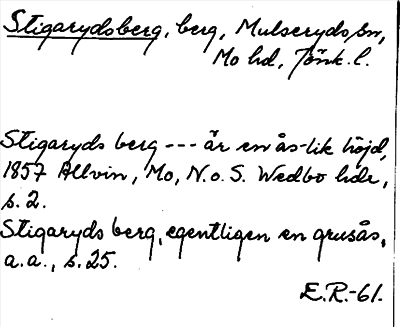 Stigarydsberg, berg, Mulseryds sn,
Mo hd, Jönk. l.
Stigaryds berg --- är en ås-lik höjd,
1857 Allvin, Mo, N. o. S. Wedbo hdr,
s. 2.
Stigaryds berg, egentligen en grusås,
a. a., s. 25.
E.R.-61.